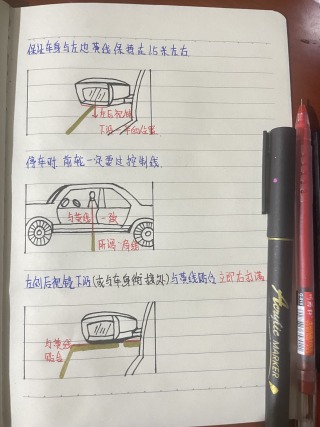 保证车身与左边黄线保持在1.5米左右
左后视镜
下沿
停车时 前轮一定要过控制线
与黄线 一致
左侧后视镜下沿(或与车身衔接处)与黄线贴合 立即右打满
与黄线
贴合
Acrylic MARKER